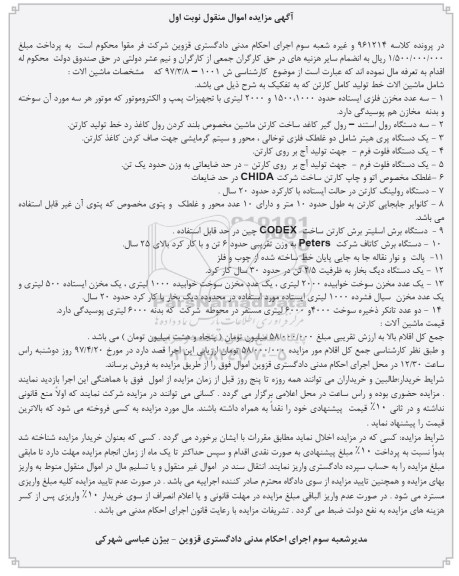 آگهی مزایده اموال منقول نوبت اول
در پرونده کلاسه ۹۶۱۲۱۴ و غیره شعبه سوم اجرای احکام مدنی دادگستری قزوین شرکت فر مقوا محکوم است به پرداخت مبلغ
۱/۵۰۰/۰۰۰/۰۰۰ ریال به انضمام سایر هزینه های در حق کارگران جمعی از کارگران و نیم عشر دولتی در حق صندوق دولت محکوم له
اقدام به تعرفه مال نموده اند که عبارت است از موضوع کارشناسی ش ۱۰۰۱ – ۹۷/۳/۸ که مشخصات ماشین آلات :
شامل ماشین الات خط تولید کامل کارتن که به تفکیک به شرح ذیل می باشد.
۱ – سه عدد مخزن فلزی ایستاده حدود ۱۵۰۰،۱۰۰۰ و ۲۰۰۰ لیتری با تجهیزات پمپ و الکتروموتور که موتور هر سه مورد آن سوخته
و بدنه مخازن هم پوسیدگی دارد.
۲ – سه دستگاه رول استند – رول گیر کاغذ ساخت کارتن ماشین مخصوص بلند کردن رول کاغذ رد خط تولید کارتن.
۳ – یک دستگاه پری هیتر شامل دو غلطک فلزی توخالی ، محور و سیتم گرمایشی جهت صاف کردن کاغذ کارتن.
۴ – یک دستگاه فلوت فرم – جهت تولید آج بر روی کارتن.
۵ – یک دستگاه فلوت فرم – جهت تولید آج بر روی کارتن – در حد ضایعاتی به وزن حدود یک تن.
۶ –غلطک مخصوص اتو و چاپ کارتن ساخت شرکت CHIDA در حد ضایعات
۷ – دستگاه رولینگ کارتن در حالت ایستاده با کارکرد حدود ۲۰ سال .
۸ – کانوایر جابجایی کارتن به طول حدود ۱۰ متر و دارای ۱۰ عدد محور و غلطک و پتوی مخصوص که پتوی آن غیر قابل استفاده
می باشد.
۹ – دستگاه برش اسلیتر برش کارتن ساخت CODEX چین در حد قابل استفاده .
۱۰ – دستگاه برش کاتاف شرکت Peters به وزن تقریبی حدود ۶ تن و با کار کرد بالای ۲۵ سال.
۱۱– پالت و نوار نقاله جا به جایی پایان خط ساخته شده از چوب و فلز
۱۲ – یک دستگاه دیگ بخار به ظرفیت ۲/۵ تن در حدود ۳۰ سال کار کرد.
۱۳ – یک عدد مخزن سوخت خوابیده ۲۰۰۰ لیتری ، یک عدد مخزن سوخت خوابیده ۱۰۰۰ لیتری ، یک مخزن ایستاده ۵۰۰ لیتری و
یک عدد مخزن سیال فشرده ۱۰۰۰ لیتری ایستاده مورد استفاده در محدوده دیگ بخار با کار کرد حدود ۲۰ سال.
۱۴ – دو عدد تانکر ذخیره سوخت ۴۰۰۰و ۶۰۰۰ لیتری مستقر در محوطه شرکت که بدنه ۶۰۰۰ لیتری پوسیدگی دارد.
قیمت ماشین آلات :
جمع کل اقلام بالا به ارزش تقریبی مبلغ ۵۸/۰۰۰/۰۰۰ میلیون تومان ( پنجاه و هشت میلیون تومان ) می باشد .
و طبق نظر کارشناسی جمع کل اقلام مور مزایده ۵۸/۰۰۰/۰۰۰ تومان ارزیابی این اجرا قصد دارد در مورخ ۹۷/۴/۲۰ روز دوشنبه راس
ساعت ۱۲/۳۰ در محل اجرای احکام مدنی دادگستری قزوین اموال فوق را از طریق مزایده به فروش برساند.
شرایط خریدار:طالبین و خریداران می توانند همه روزه تا پنج روز قبل از زمان مزایده از امول فوق با هماهنگی این اجرا بازدید نمایند
. مزایده حضوری بوده و راس ساعت در محل اعلامی برگزار می گردد . کسانی می توانند در مزایده شرکت نمایند که اولاً منع قانونی
نداشته و در ثانی ۱۰٪ قیمت پیشنهادی خود را نقداً به همراه داشته باشند. مال مورد مزایده به کسی فروخته می شود که بالاترین
قیمت را پیشنهاد نماید .
شرایط مزایده: کسی که در مزایده اخلال نماید مطابق مقررات با ایشان برخورد می گردد . کسی که بعنوان خریدار مزایده شناخته شد
بدواً نسبت به پرداخت ۱۰٪ مبلغ پیشنهادی به صورت نقدی اقدام و سپس حداکثر تا یک ماه از زمان انجام مزایده مهلت دارد تا مابقی
مبلغ مزایده را به حساب سپرده دادگستری واریز نمایند. انتقال سند در اموال غیر منقول و یا تسلیم مال در اموال منقول منوط به واریز
بهای مزایده و همچنین تایید مزایده از سوی دادگاه محترم صادر کننده اجراییه می باشد . در صورت عدم تایید مزایده کلیه مبلغ واریزی
مسترد می شود . در صورت عدم واریز الباقی مبلغ مزایده در مهلت قانونی و یا اعلام انصراف از سوی خریدار ۱۰٪ واریزی پس از کسر
هزینه های مزایده به نفع دولت ضبط می گردد . تشریفات مزایده با رعایت قانون اجرای احکام مدنی می باشد .
مدیرشعبه سوم اجرای احکام مدنی دادگستری قزوین – بیژن عباسی شهرکی